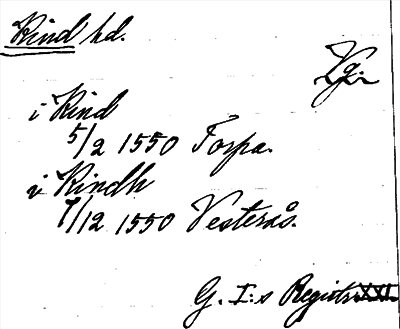 Kind hd.
Vg.
i Kind
5/2 1550 Torpa.
i Kindh
7/12 1550 Vesterås.
G. I:s Registr. XXI.